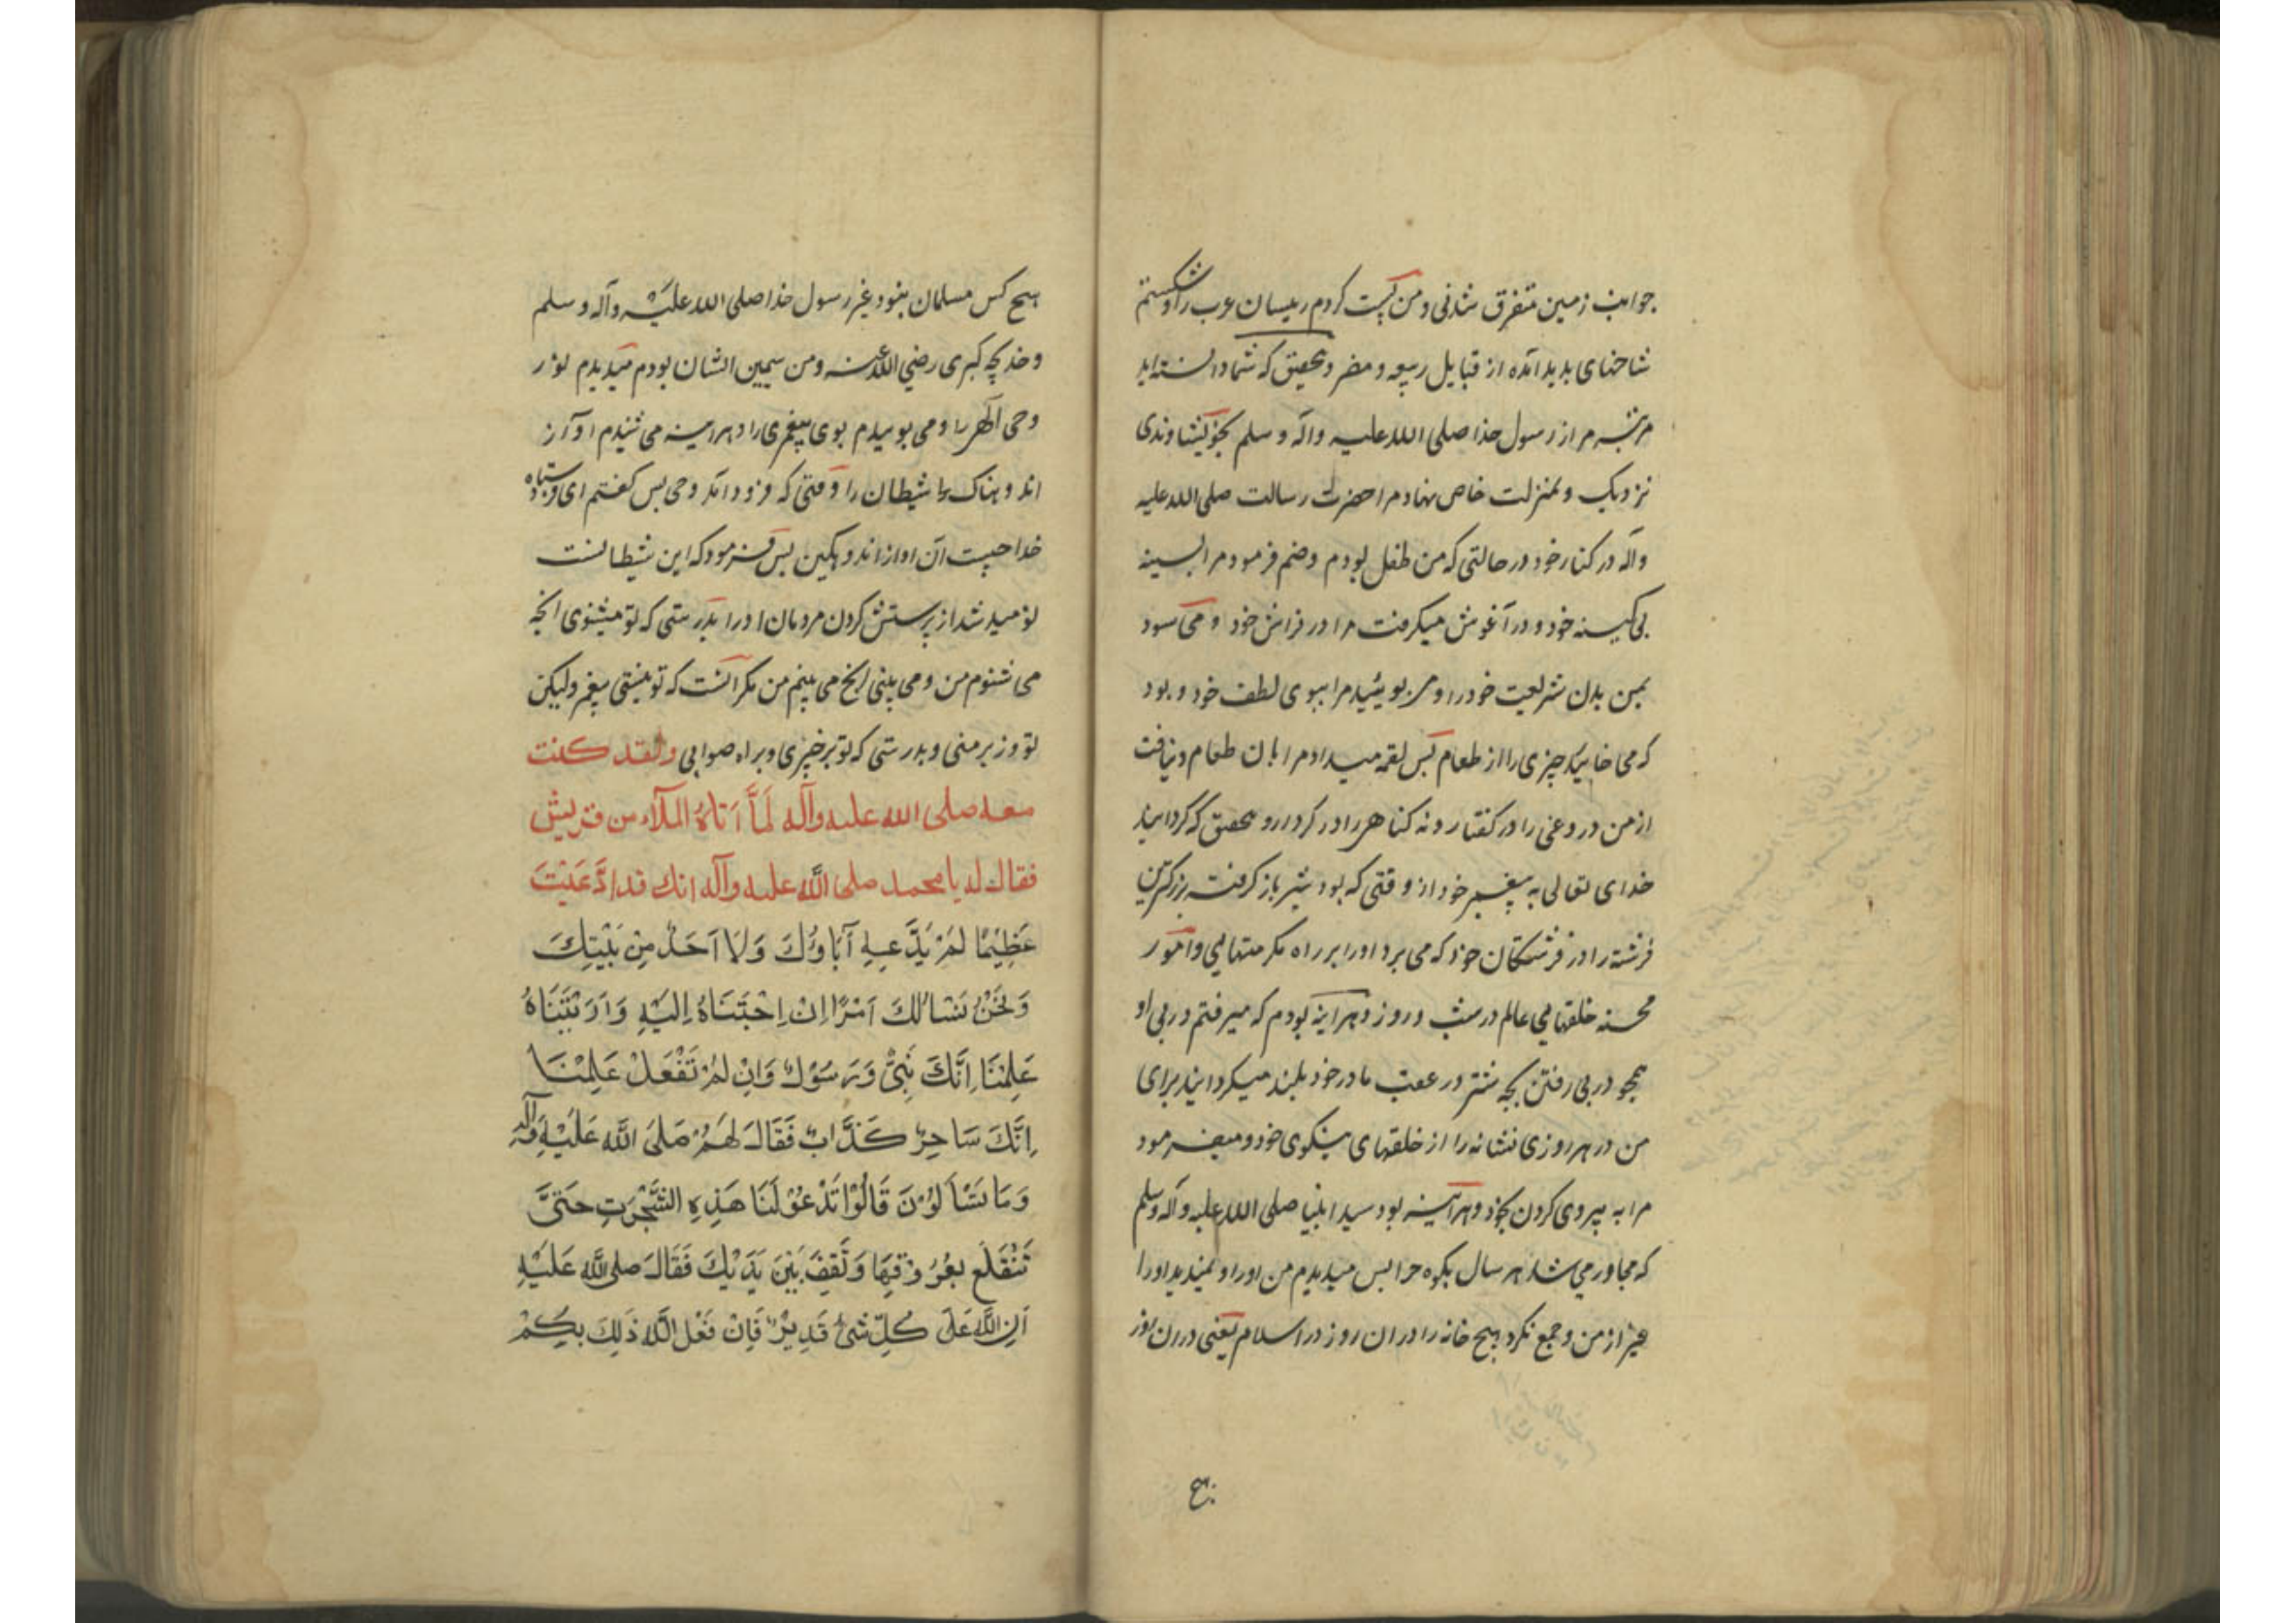 جوانب زمین متفرق شدنی و من پست کردم رییسان عرب را و شکستم
شاخهای بدید آمده از قبایل ربیعه و مضر و بتحقیق که شما دانسته‌اید
مرتبه مرا از رسول خدا صلی الله علیه و آله و سلم بخویشاوندی
نزدیک و بمنزلت خاص نهاد مرا حضرت رسالت صلی الله علیه
و آله در کنار خود در حالتی که من طفل بودم و ضم فرمود مرا بسینه
بی کینه خود و در آغوش میگرفت مرا در فراش خود و می سود
بمن بدن شریعت خود را و می بویئید مرا ببوی لطف خود و بود
که می خایید چیزی را از طعام پس لقمه میداد مرا بان طعام و نیافت
از من دروغی را در گفتار و نه گناهی را در کردار و بتحقیق که گردانید
خدای تعالی به پیغمبر خود از وقتی که بود شیر باز گرفته بزرگترین
فرشته را از فرشتگان خود که می برد او را بر راه مکرمتهایی و امور
محسنه خلقهایی عالم در شب و روز و هر آینه بودم که میرفتم در پی او
همچو در پی رفتن بچه شتر در عقب مادر خود بلند میگردانید برای
من در هر روزی نشانه را از خلقهای نیکوی خود و میفرمود
مرا به پیروی کردن بخود و هر آینه بود سید انبیا صلی الله علیه و آله و سلم
که مجاور می شد هر سال بکوه حرا پس میدیدم من او را و نمیدید او را
غیر از من و جمع نکرد هیچ خانه را در ان روز در اسلام یعنی در ان روز
هیچ
هیچ کس مسلمان نبود غیر رسول خدا صلی الله علیه و آله و سلم
و خدیجه کبری رضی الله عنه و من سیمین ایشان بودم میدیدم نور
وحی الهی را و می بوییدم بوی پیغمبری را و هر اینه می شنیدم آواز
اندوهناک را شیطان را وقتی که فرود آمد وحی پس گفتم ای فرستاده
خدا چیست آن اواز اندوهگین پس فرمود که این شیطانست
نومید شد از پرستش کردن مردمان او را بدرستی که تو میشنوی انچه
می شنوم من و می بینی انچ می بینم من مگر آنست که تو نیستی پیغمبر ولیکن
تو وزیر منی و بدرستی که تو بر خیری و براه صوابی ولقد کنت
معه صلی الله علیه وآله لَمَّا اَتاهُ المَلَاء من قریش
فقال له یا محمد صلی اللّه علیه وآله انك قد ادَّعَیْتَ
عَظِیْمًا لَمْ یَدَّعِهِ آبَاؤُكَ وَلَا اَحَدٌ مِنْ بَیْتِكَ
وَنَحْنُ نَسْاَلُكَ اَمْرًا اِنْ اِجَبْتَنَاهُ اِلَیْهِ وَاَرَیْتَنَاهُ
عَلِمْنَا اِنَّكَ نَبِیٌّ وَرَسُوْلٌ وَاِنْ لَمْ تَفْعَلْ عَلِمْنَا
اِنَّكَ سَاحِرٌ كَذَّابٌ فَقَالَ لَهُمْ صَلَّی اللَّه عَلَیْهِ وَآلِهِ
وَمَا تَسْاَلُوْنَ قَالُوْا تَدْعُوْ لَنَا هَذِهِ الشَّجَرَتِ حَتَّیَ
تَنْقَلِعَ بِعُرُوْقِهَا وَتَقِفَ بَیْنَ یَدَیْكَ فَقَالَ صلی اللَّه عَلَیْهِ
اَنِ اللَّهَ عَلَی كُلِّ شَیْ قَدِیْرٌ فَاِنْ فَعَلَ اللَّه ذَلِكَ بِكُمْ